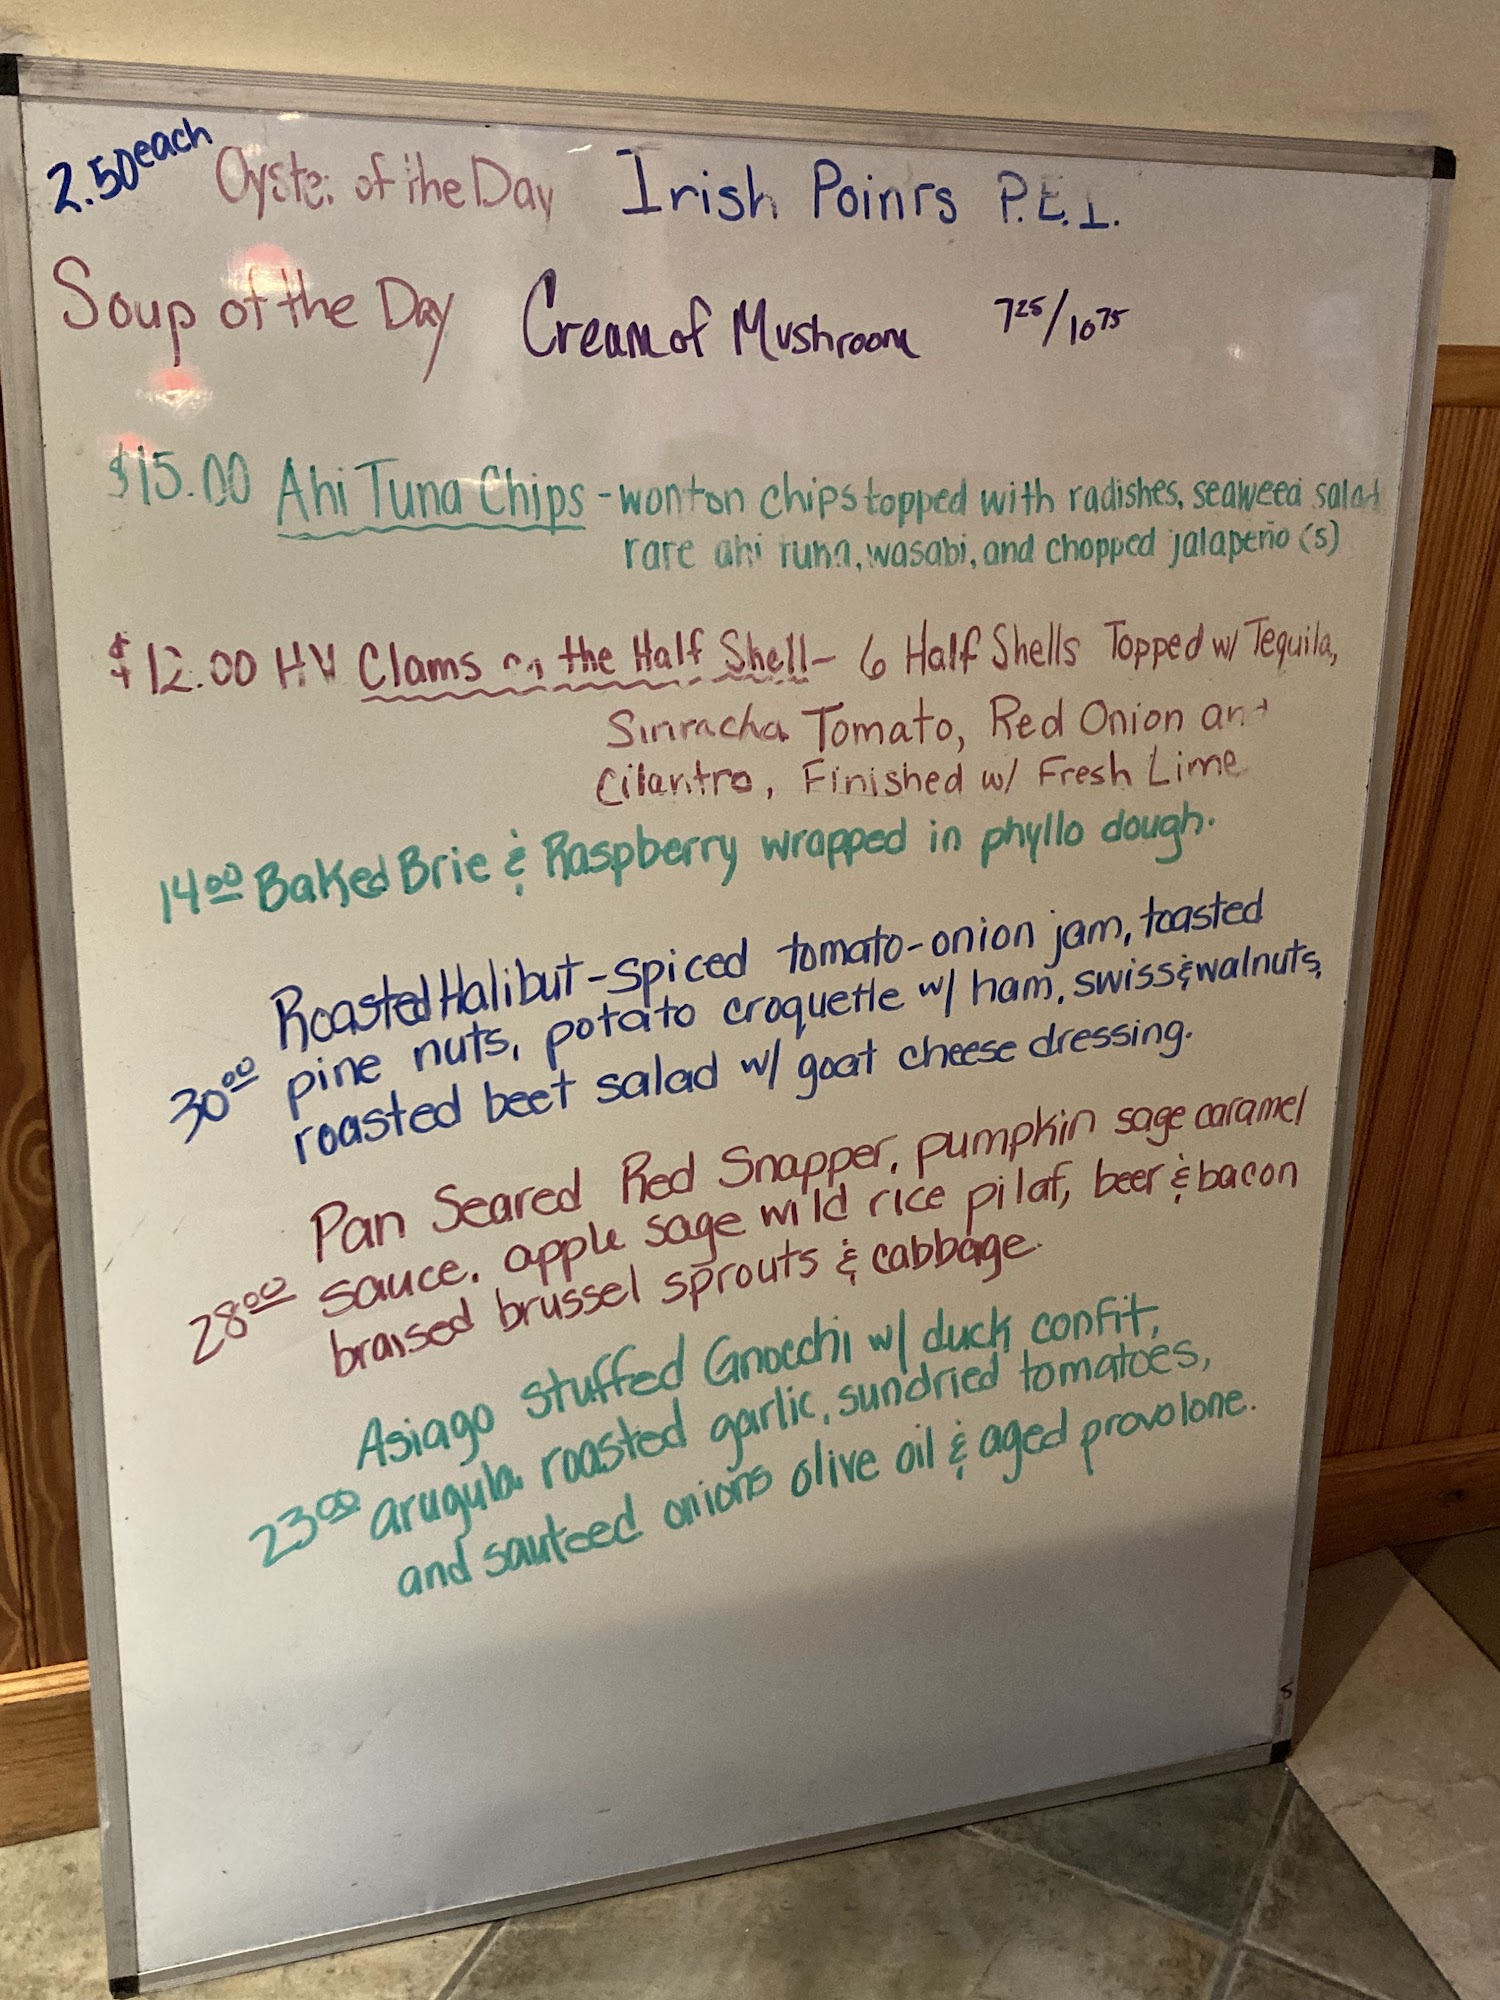 2.50 each Oyster of the Day Irish Points P.E.I.
Soup of the Day Cream of Mushroom 7 25/10 75
$15.00 Ahi Tuna Chips - wonton chips topped with radishes, seaweed salad
rare ahi tuna, wasabi, and chopped jalapeño (5)
$12.00 Clams on the Half Shell - 6 Half Shells Topped w/ Tequila,
Sriracha Tomato, Red Onion and
Cilantro, Finished w/ Fresh Lime
14 00 Baked Brie & Raspberry wrapped in phyllo dough.
Roasted Halibut - spiced tomato-onion jam, toasted
30 00 pine nuts, potato croquette w/ ham, swiss & walnuts,
roasted beet salad w/ goat cheese dressing.
Pan Seared Red Snapper, pumpkin sage caramel
28 00 sauce, apple sage wild rice pilaf, beer & bacon
braised brussel sprouts & cabbage.
Asiago stuffed Gnocchi w/ duck confit,
23 00 arugula roasted garlic, sundried tomatoes,
and sauteed onions olive oil & aged provolone.